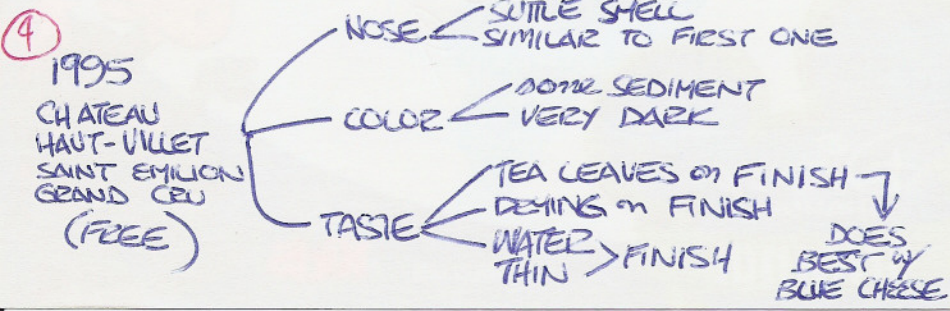 4
1995
CHATEAU
HAUT-VILLET
SAINT EMILION
GRAND CRU
(FREE)
NOSE
SUTTLE SMELL
SIMILAR TO FIRST ONE
COLOR
SOME SEDIMENT
VERY DARK
TASTE
TEA LEAVES on FINISH
DRYING on FINISH
WATER
THIN
FINISH
DOES
BEST w/
BLUE CHEESE